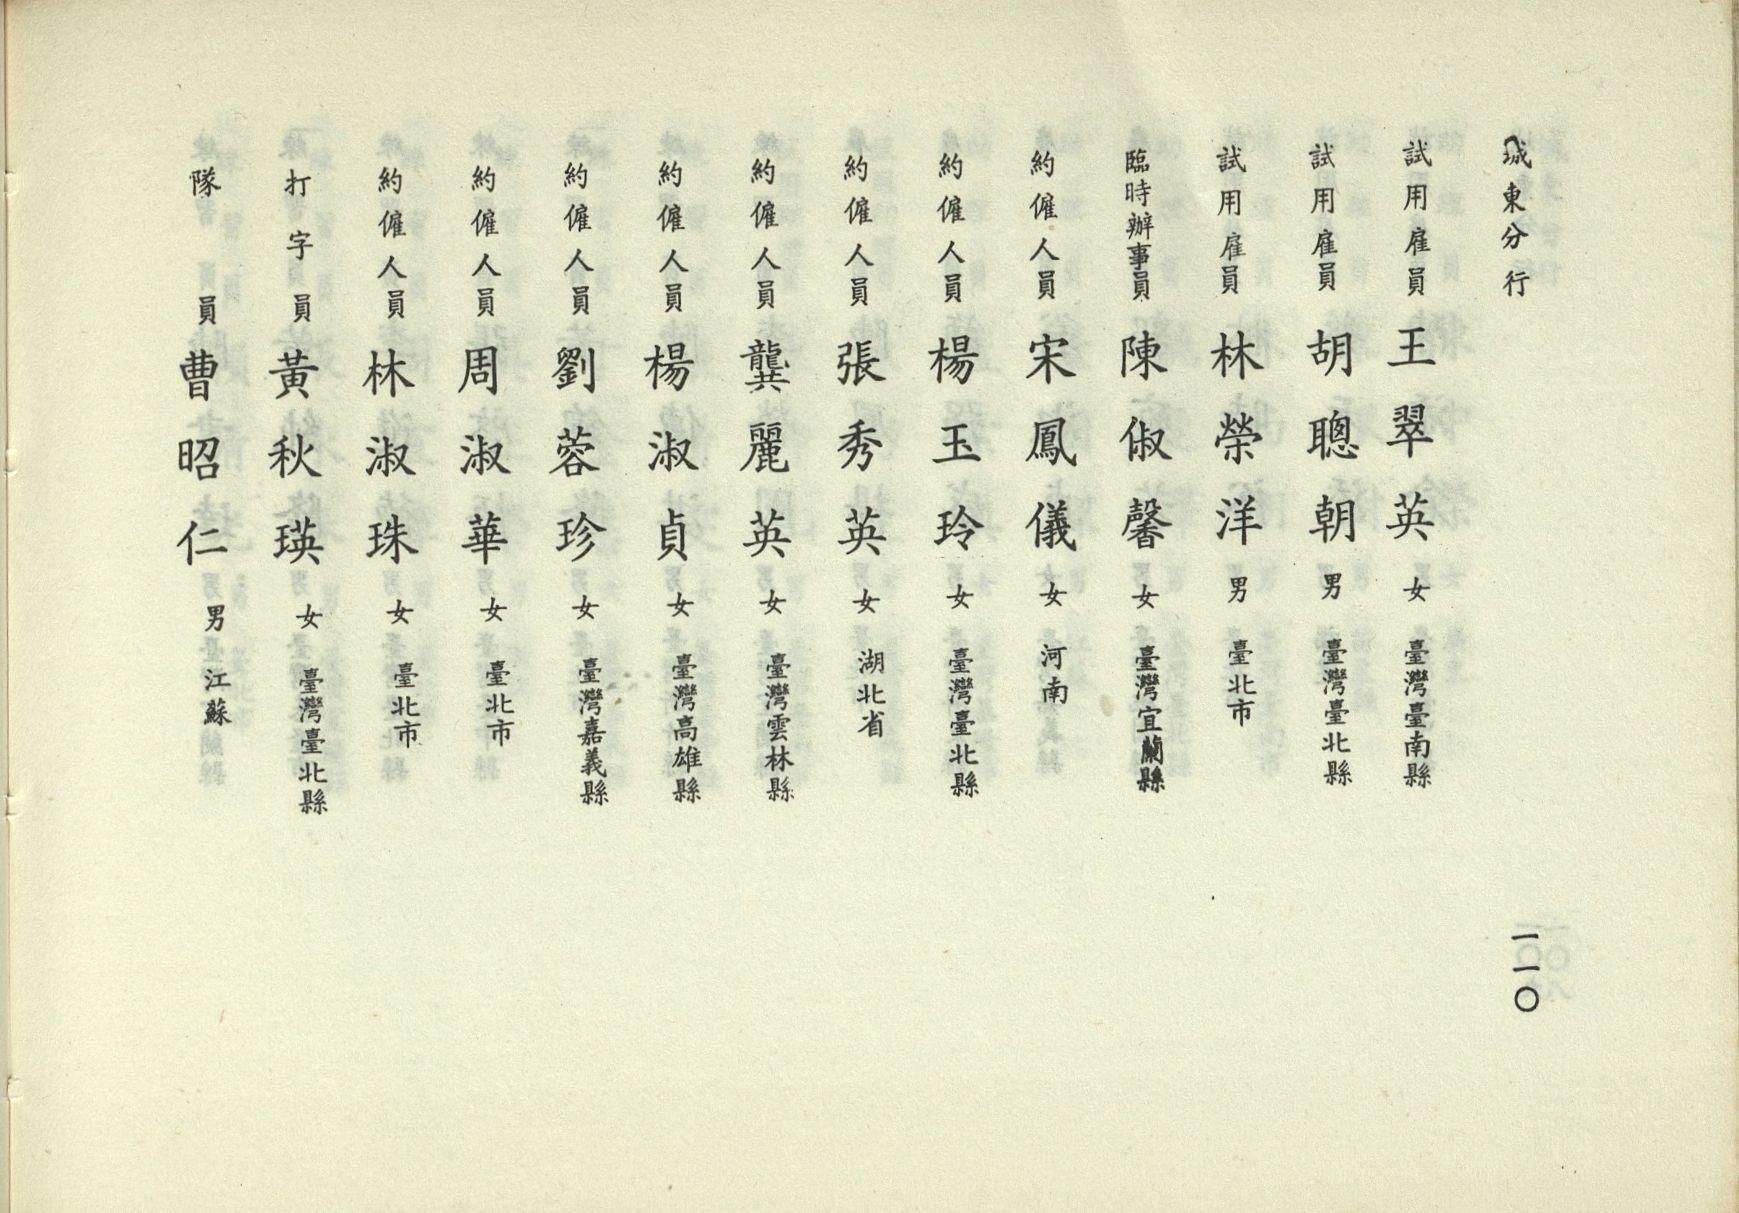 城東分行
一一〇
試用雇員 王翠英 女 臺灣臺南縣
試用雇員 胡聰朝 男 臺灣臺北縣
試用雇員 林榮洋 男 臺北市
臨時辦事員 陳俶馨 女 臺灣宜蘭縣
約僱人員 宋鳳儀 女 河南
約僱人員 楊玉玲 女 臺灣臺北縣
約僱人員 張秀英 女 湖北省
約僱人員 龔麗英 女 臺灣雲林縣
約僱人員 楊淑貞 女 臺灣高雄縣
約僱人員 劉蓉珍 女 臺灣嘉義縣
約僱人員 周淑華 女 臺北市
約僱人員 林淑珠 女 臺北市
打字員 黃秋瑛 女 臺灣臺北縣
隊員 曹昭仁 男 江蘇